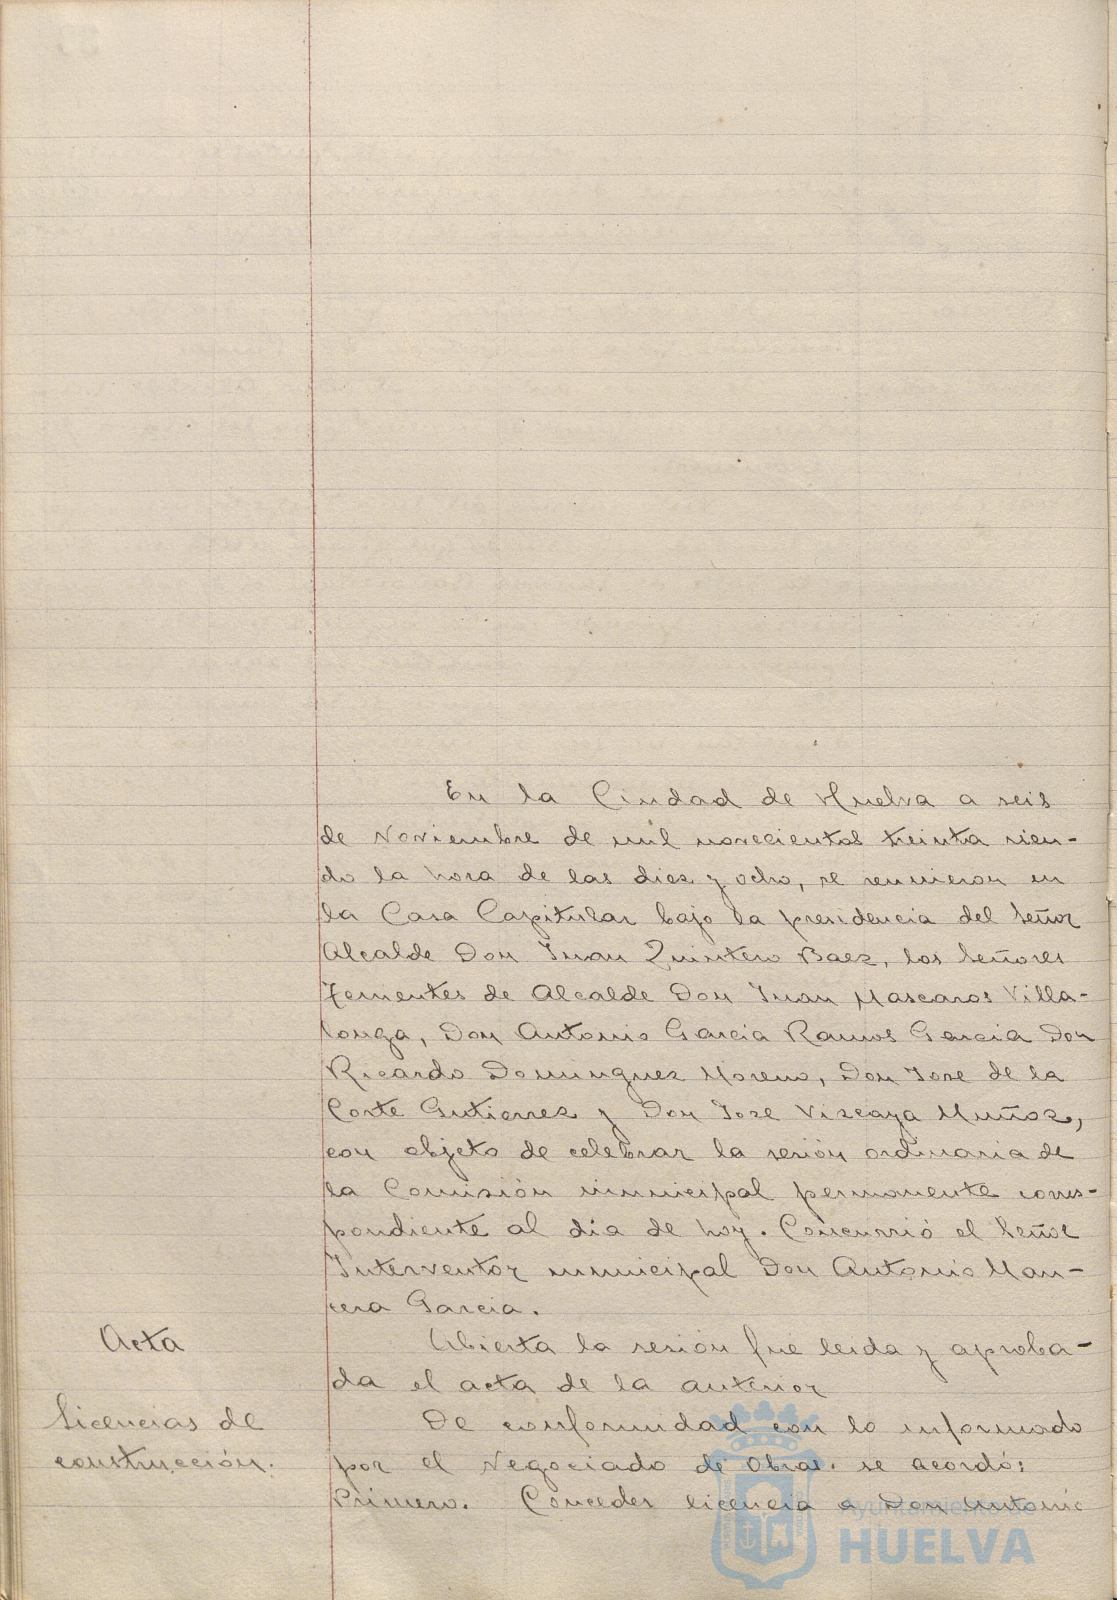 En la Ciudad de Huelva a seis
de Noviembre de mil novecientos treinta sien-
do la hora de las diez y ocho, se reunieron en
la Casa Capitular bajo la presidencia del Señor
Alcalde Don Juan Quintero Baez, los Señores
Tenientes de Alcalde Don Juan Mascaros Villa-
longa, Don Antonio Garcia Ramos Garcia Don
Ricardo Dominguez Moreno, Don Jose de la
Corte Gutierrez y Don Jose Viscaya Muñoz,
con objeto de celebrar la sesión ordinaria de
la Comisión municipal permanente corres-
pondiente al día de hoy. Concurrió el Señor
Interventor municipal Don Antonio Man-
cera Garcia.
Acta
Abierta la sesión fue leida y aproba-
da el acta de la anterior
Licencias de
construcción.
De conformidad con lo informado
por el Negociado de Obras. se acordó:
Primero. Conceder licencia a Don Antonio
Ayuntamiento de
HUELVA